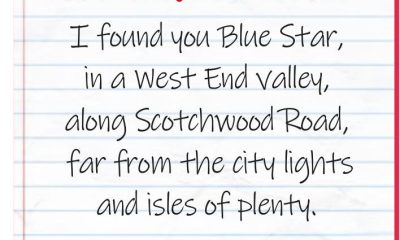 I found you Blue Star,
in a West End valley,
along Scotchwood Road,
far from the city lights
and isles of plenty.